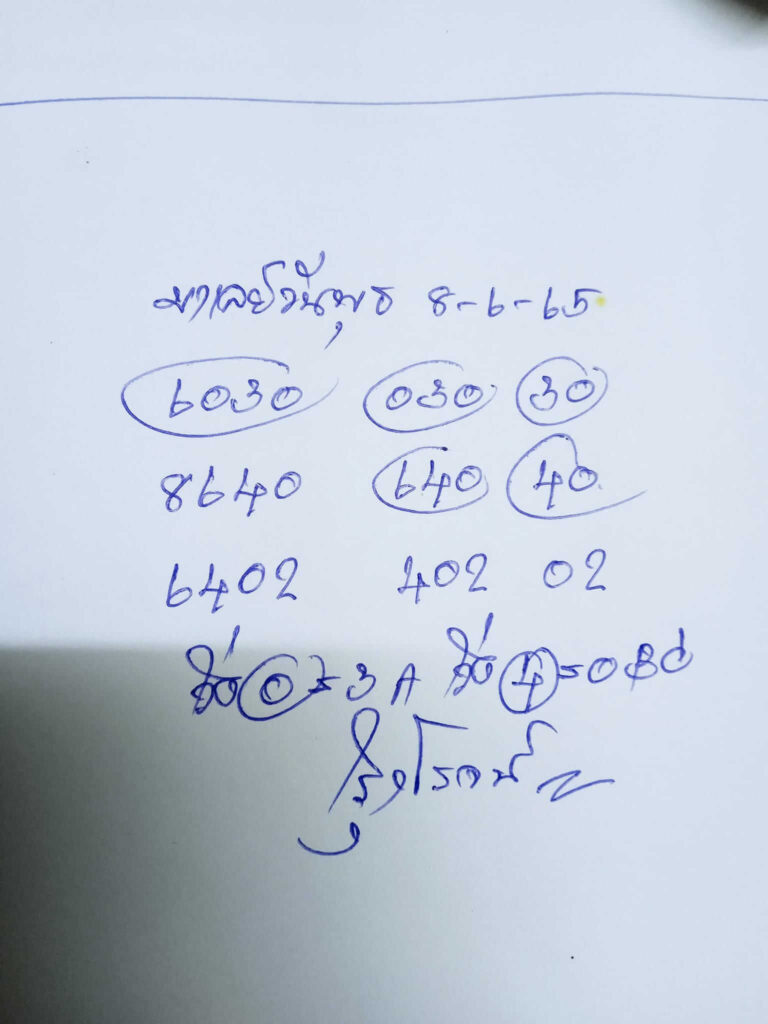 มาเลย์วันพุธ 8-6-65
6030 030 30
8640 640 40
6402 402 02
0 = 3 4 = 0
รุ่งโรจน์